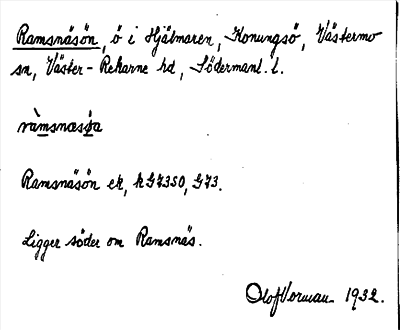 Ramsnäsön, ö i Hjälmaren, Konungsö, Västermo
sn, Väster-Rekarne hd, Södermanl. l.
ràmsnæsö̀a
Ramsnäsön ek, kG7350, G73.
Ligger söder om Ramsnäs.
Olof Vorman 1932.